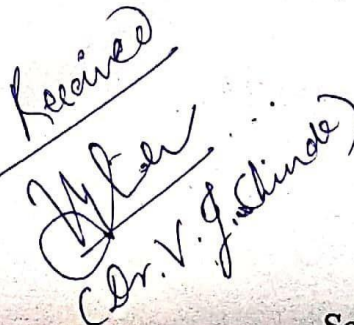 Received
(Dr. V. J. Shinde)